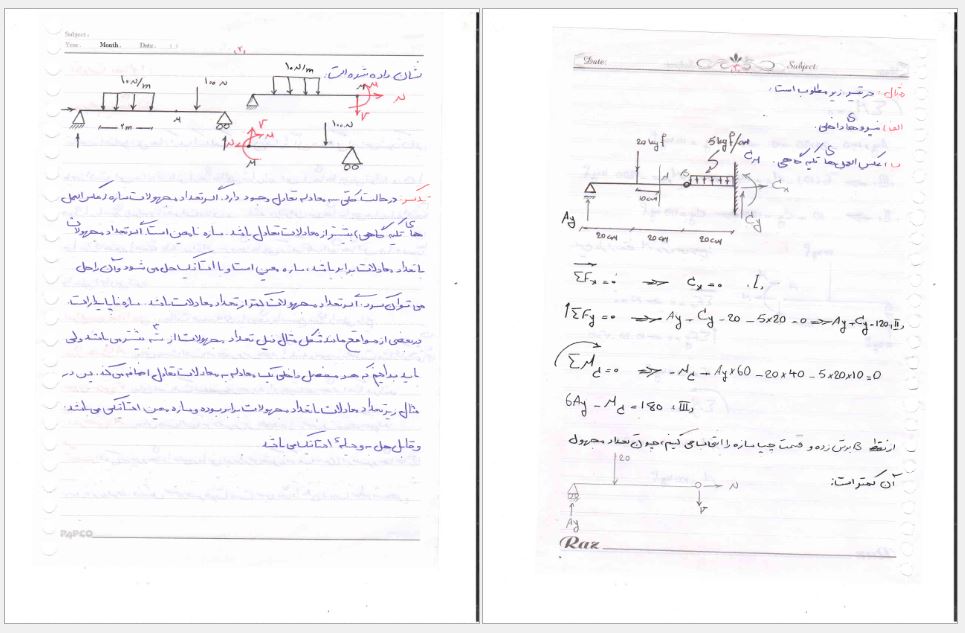 Subject:
Year. Month. Date.
نشان داده شده است:
10 N/m
100 N
10 N/m
M
N
V
2m
M
V
M
N
M
100 N
تذکر: در حالت کلی سه معادله تعادل وجود دارد. اگر تعداد مجهولات سازه (عکس‌العمل
های تکیه گاهی) بیشتر از معادلات تعادل باشد، سازه نامعین است. اگر تعداد مجهولات
با تعداد معادلات برابر باشد، سازه معین است و با استاتیک حل می شود و آن را حل
می توان کرد. اگر تعداد مجهولات کمتر از تعداد معادلات باشد، سازه ناپایدار است.
در بعضی از مواقع مانند شکل مثال ذیل تعداد مجهولات از 3 بیشتر می باشند ولی
باید بدانیم که هر مفصل داخلی یک معادله به معادلات تعادل اضافه می کند. پس در
مثال زیر تعداد معادلات با تعداد مجهولات برابر بوده و سازه معین استاتیکی می باشد
و قابل حل به وسیله استاتیک می باشد
PAPCO
Date:
Subject
مثال: در تیر زیر مطلوب است:
الف) نیروهای داخلی.
ب) عکس العمل های تکیه گاهی.
20 kgf
5 kgf/cm
CM
M
B
Cx
10 cm
Ay
Cy
20 cm
20 cm
20 cm
ΣFx = 0 ⇒ Cx = 0 I
↑ΣFy = 0 ⇒ Ay + Cy - 20 - 5×20 = 0 ⇒ Ay + Cy = 120 II
ΣMc = 0 ⇒ -Mc + Ay×60 - 20×40 - 5×20×10 = 0
6Ay - Mc = 180 III
از نقطه B برش زده و قسمت چپ سازه را انتخاب می کنیم، چون تعداد مجهول
آن کمتر است:
20
N
V
Ay
Raz